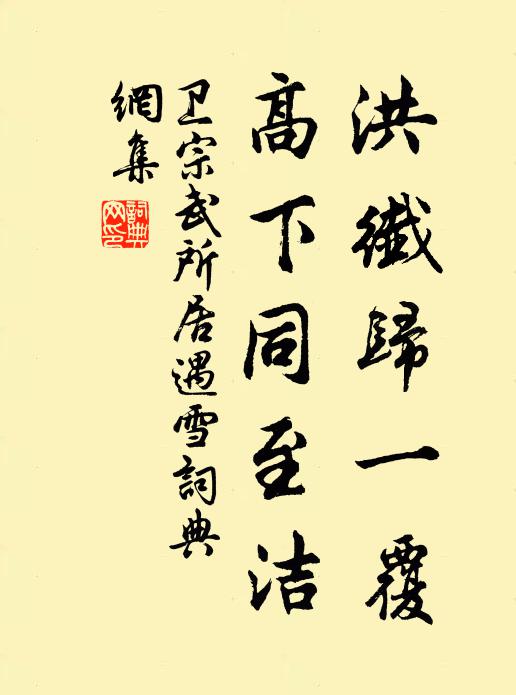 洪纖歸一覆
高下同至洁
卫宗武所居遇雪詞典
網集
詞典
网印